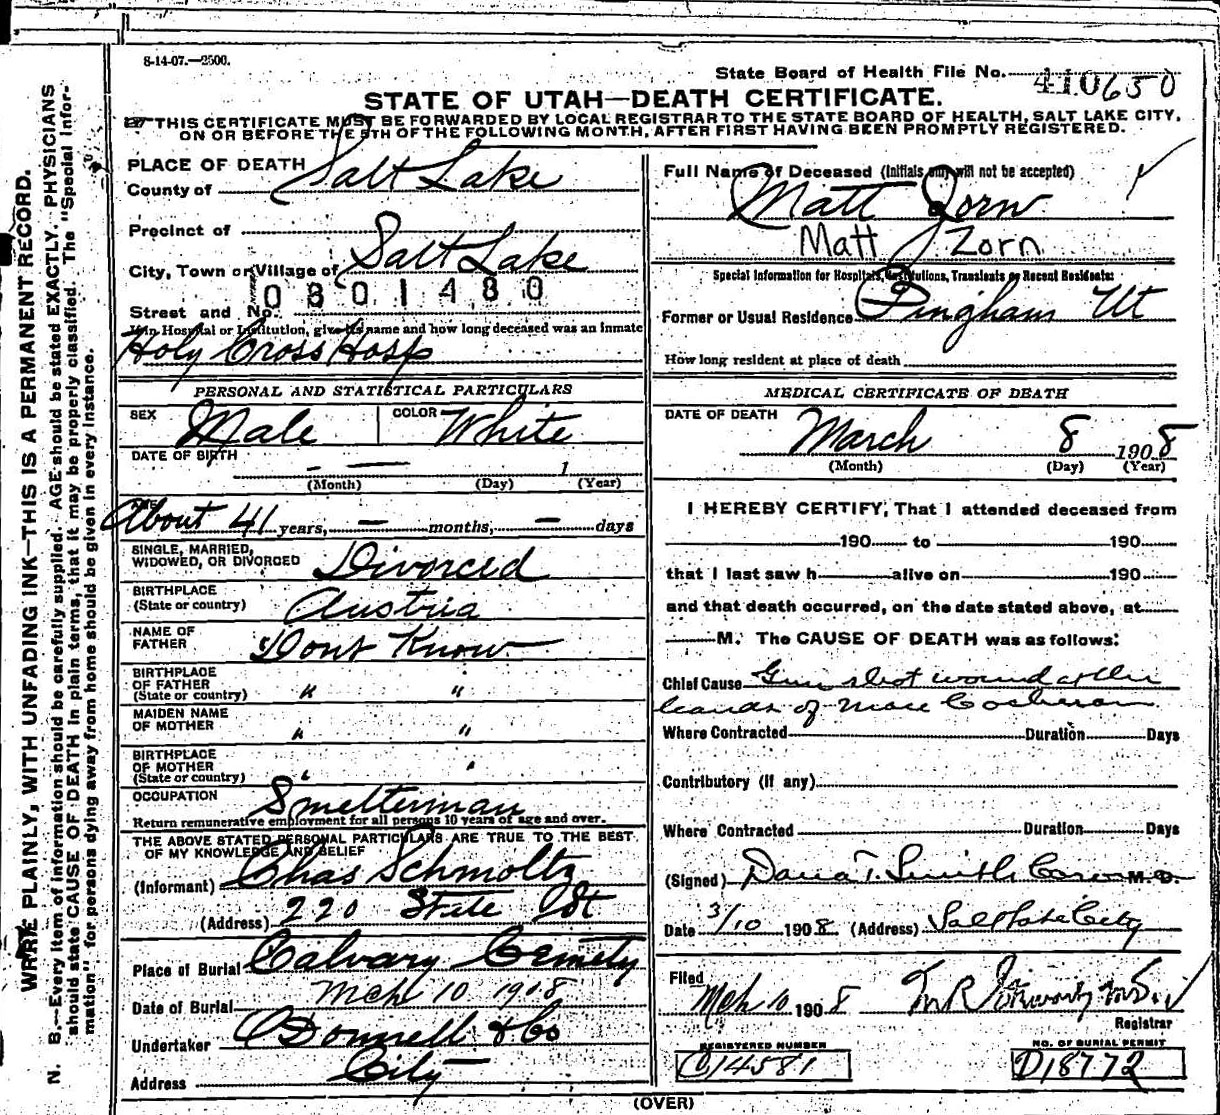 8-14-07.—2500.
State Board of Health File No. 410650
STATE OF UTAH—DEATH CERTIFICATE.
THIS CERTIFICATE MUST BE FORWARDED BY LOCAL REGISTRAR TO THE STATE BOARD OF HEALTH, SALT LAKE CITY,
ON OR BEFORE THE 5TH OF THE FOLLOWING MONTH, AFTER FIRST HAVING BEEN PROMPTLY REGISTERED.
WRITE PLAINLY, WITH UNFADING INK—THIS IS A PERMANENT RECORD.
N. B.—Every item of information should be carefully supplied. AGE should be stated EXACTLY. PHYSICIANS
should state CAUSE OF DEATH in plain terms, that it may be properly classified. The "Special Infor-
mation" for persons dying away from home should be given in every instance.
PLACE OF DEATH
County of Salt Lake
Precinct of
City, Town or Village of Salt Lake
0301480
Street and No.
If in Hospital or Institution, give its name and how long deceased was an inmate
Holy Cross Hosp
PERSONAL AND STATISTICAL PARTICULARS
SEX Male COLOR White
DATE OF BIRTH – — 1
(Month) (Day) (Year)
About 41 years, – months, – days
SINGLE, MARRIED,
WIDOWED, OR DIVORCED Divorced
BIRTHPLACE
(State or country) Austria
NAME OF
FATHER Dont Know
BIRTHPLACE
OF FATHER
(State or country) " "
MAIDEN NAME
OF MOTHER " "
BIRTHPLACE
OF MOTHER
(State or country) " "
OCCUPATION Smelterman
Return remunerative employment for all persons 10 years of age and over.
THE ABOVE STATED PERSONAL PARTICULARS ARE TRUE TO THE BEST
OF MY KNOWLEDGE AND BELIEF
(Informant) Chas Schmoltz
(Address) 220 State St
Place of Burial Calvary Cemety
Date of Burial Mch 10 1908
Undertaker O'Donnell & Co
Address City
Full Name of Deceased (Initials only will not be accepted)
Matt Zorn
Matt Zorn
Special Information for Hospitals, Institutions, Transients or Recent Residents:
Former or Usual Residence Bingham Ut
How long resident at place of death
MEDICAL CERTIFICATE OF DEATH
DATE OF DEATH
March 8 1908
(Month) (Day) (Year)
I HEREBY CERTIFY, That I attended deceased from
190 to 190
that I last saw h alive on 190
and that death occurred, on the date stated above, at
M. The CAUSE OF DEATH was as follows:
Chief Cause Gun shot wound at the
hands of
Where Contracted Duration Days
Contributory (if any)
Where Contracted Duration Days
(Signed) Dana T. Smith Coroner M. D.
Date 3/10 1908 (Address) Salt Lake City
Filed
Mch 10 1908
Registrar
REGISTERED NUMBER
C14581
NO. OF BURIAL PERMIT
D18772
(OVER)